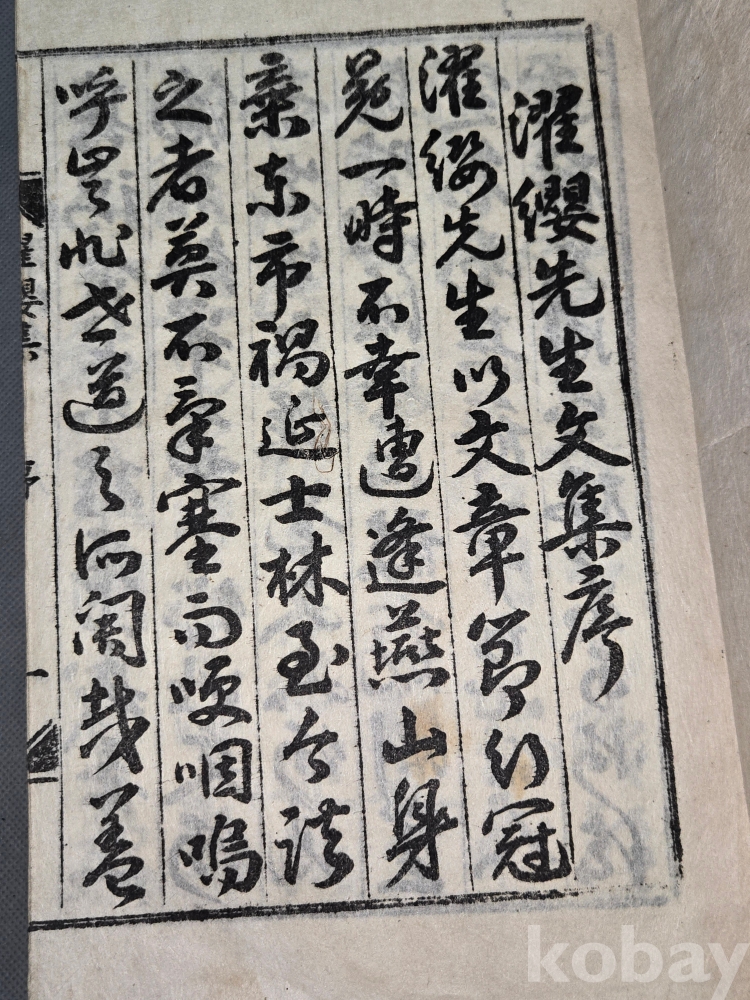 濯纓先生文集序
濯纓先生以文章節行冠
冕一時不幸遭逢燕山身
棄東市禍延士林至今談
之者莫不氣塞而哽咽嗚
呼豈非世道之所關哉盖
濯纓集 序 一
kobay